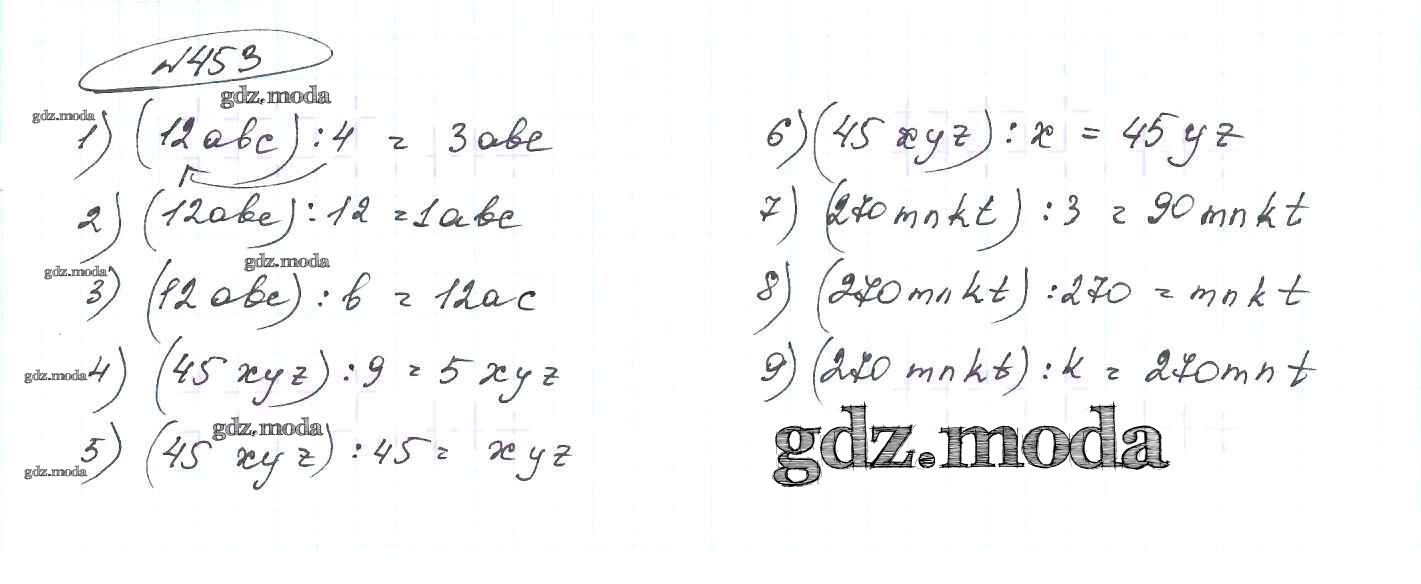 №453
gdz.moda
gdz.moda
1) (12abc) : 4 = 3abc
2) (12abc) : 12 = 1abc
gdz.moda
gdz.moda
3) (12abc) : b = 12ac
gdz.moda
4) (45xyz) : 9 = 5xyz
gdz.moda
5) (45xyz) : 45 = xyz
gdz.moda
6) (45xyz) : x = 45yz
7) (270mnkt) : 3 = 90mnkt
8) (270mnkt) : 270 = mnkt
9) (270mnkt) : k = 270mnt
gdz.moda